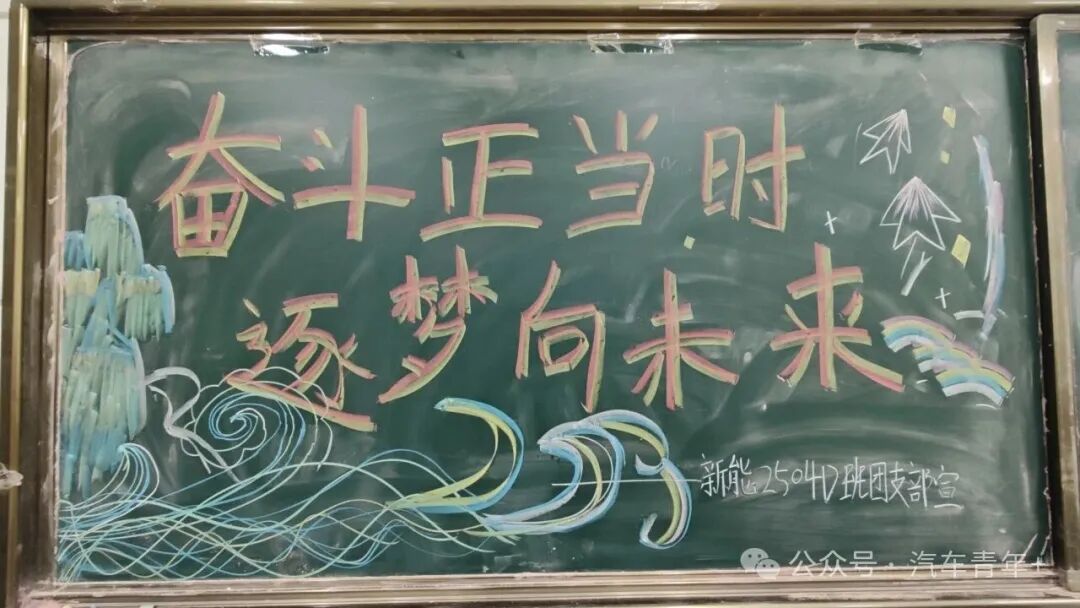 奋斗正当时
逐梦向未来
新能2504D班团支部宣
公众号·汽车青年+